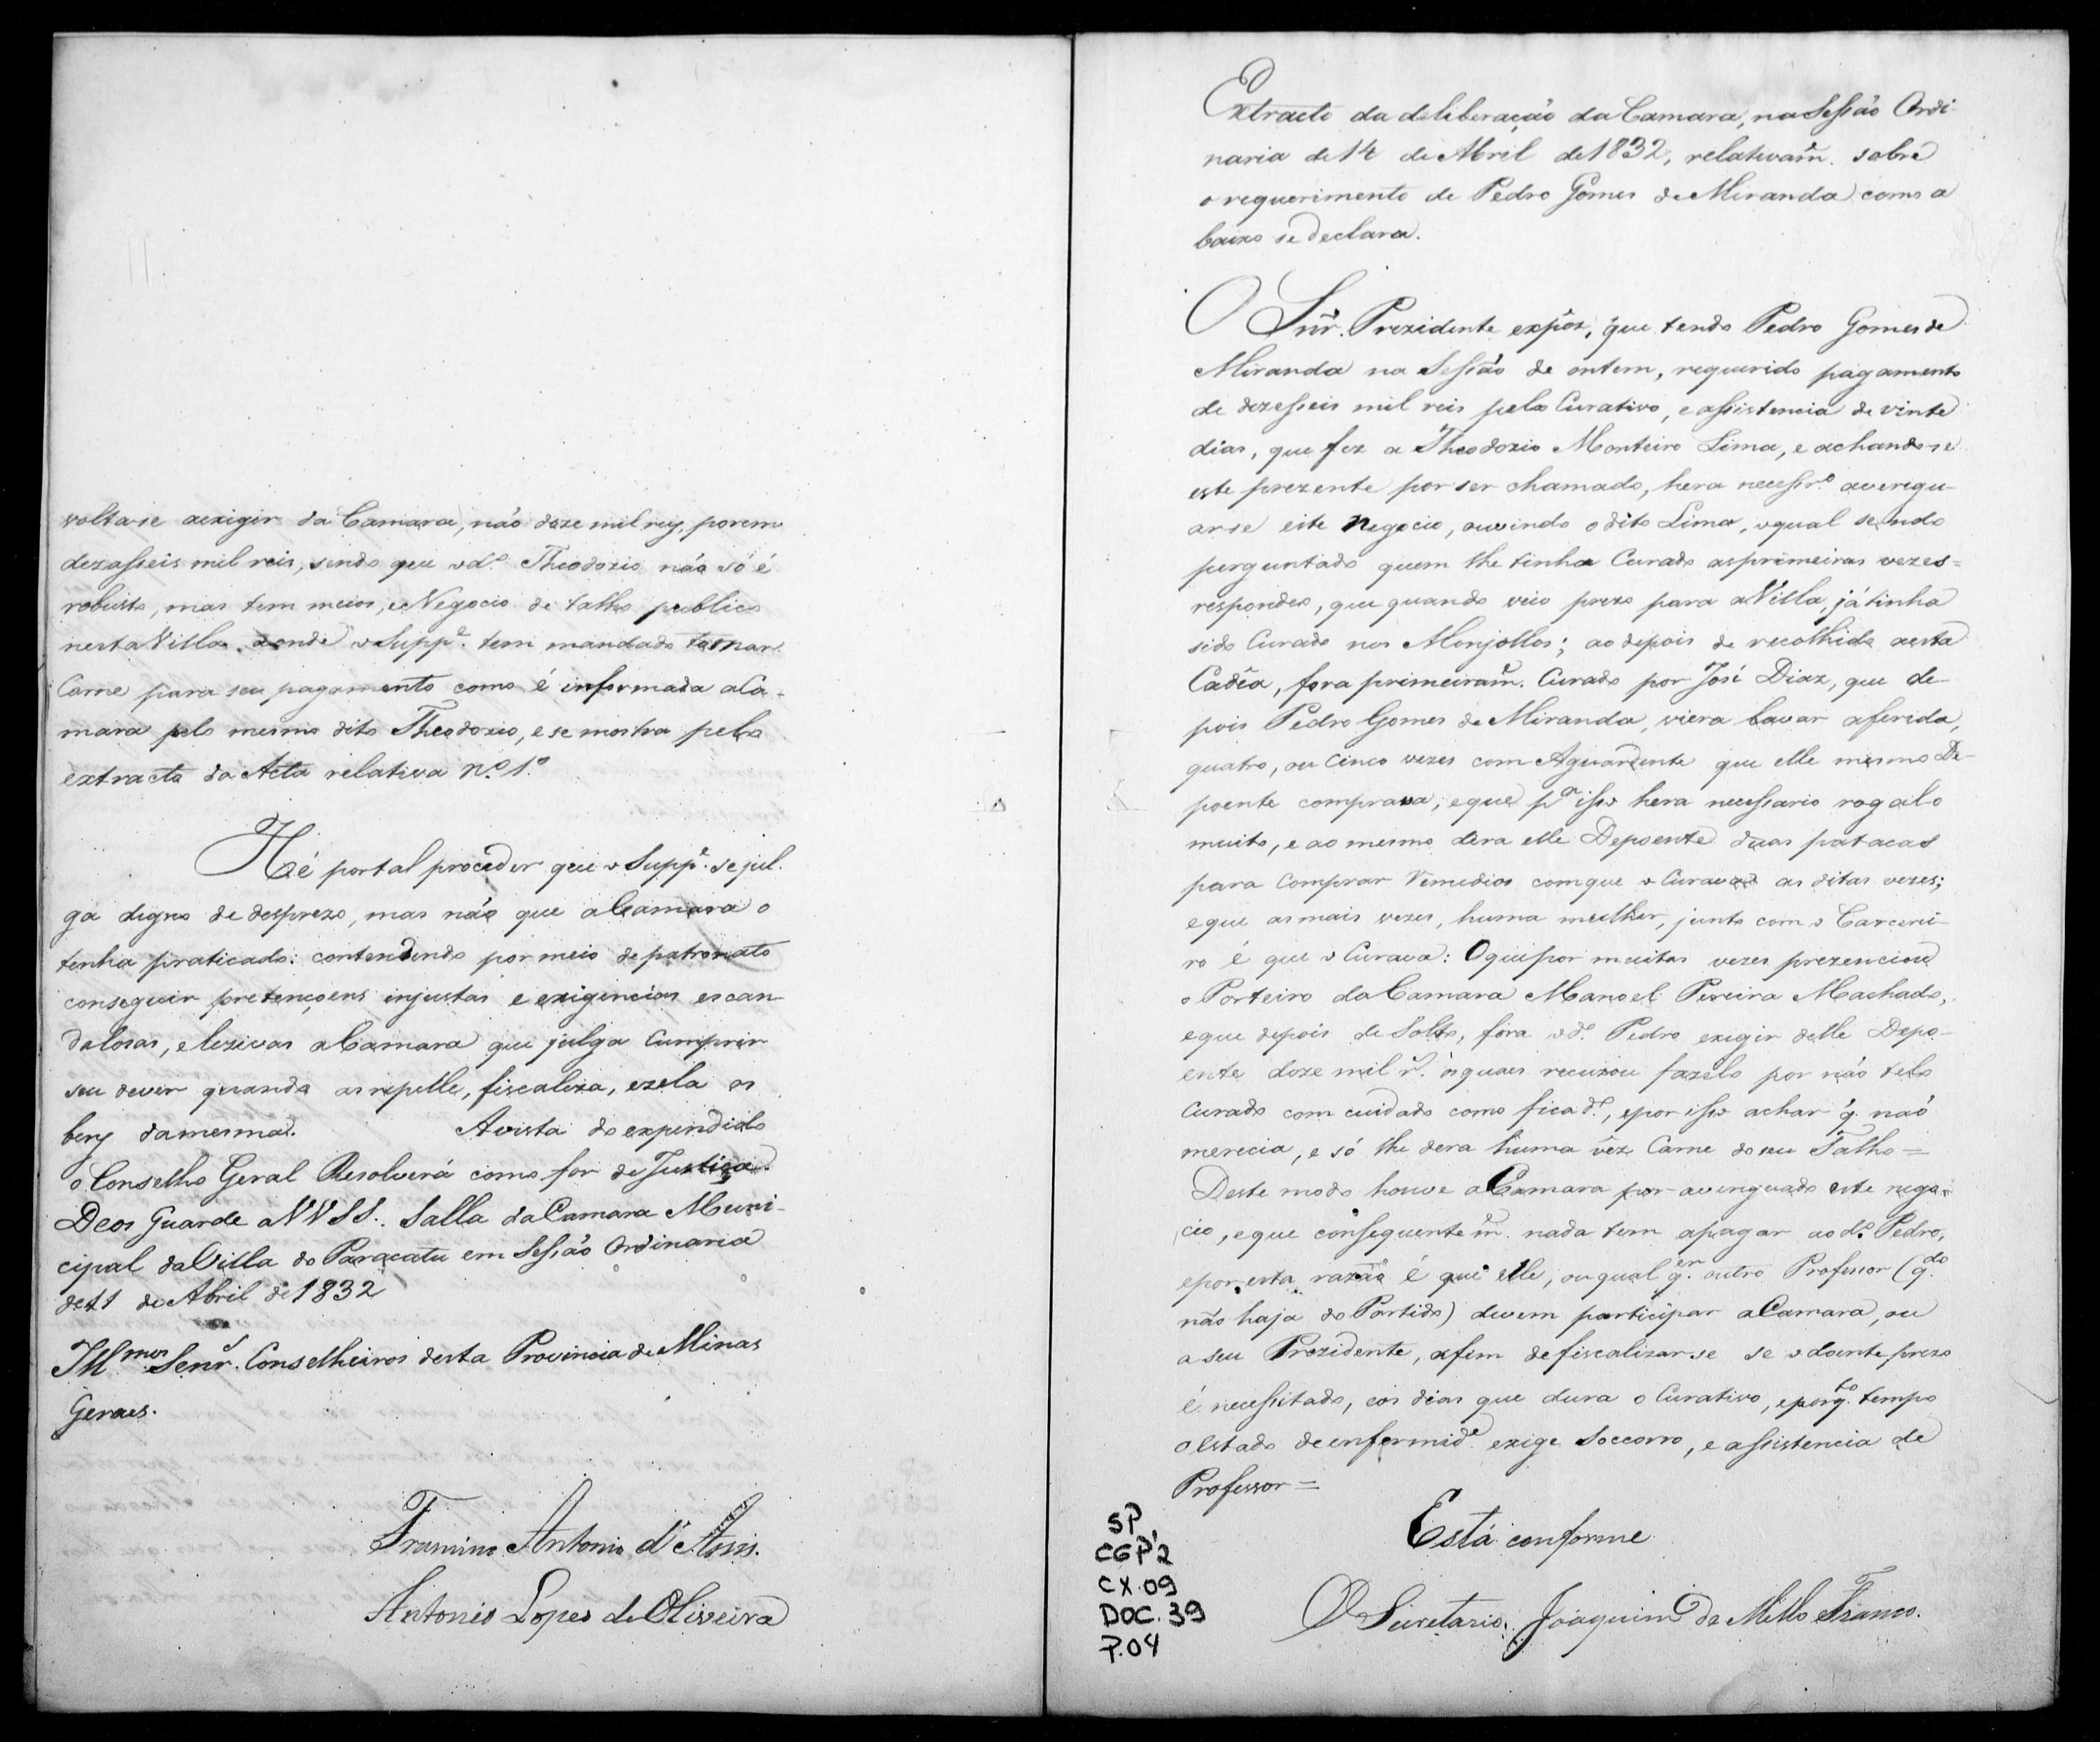 volta-se aexigir da Camara, não doze mil rey, porem
dezasseis mil reis, sendo que od.º Theodozio não só é
robusto, mas tem meios, e Negocio de talho publico
nesta Villa, donde o Supp.e tem mandado tomar
Carne para seu pagamento como é informada aCa-
mara pelo mesmo dito Theodozio, e se mostra pelo
extracto da Acta relativa n.º 1.º
Hé portal proceder que o Supp.e se jul-
ga digno de desprezo, mas não que aCamara o
tenha praticado: contendendo por meio de patronato
conseguir pretençoens injustas e exigencias escan-
dalosas, e lezivas aCamara que julga Cumprir
seu dever quando as repelle, fiscaliza, ezela os
bens damesma. Avista do expendido
o Conselho Geral Resolverá como for de Justiça.
Deos Guarde aVVSS. Salla daCamara Muni-
cipal daVilla do Paracatu em Sessão Ordinaria
de11 de Abril de 1832
Ill.mos Senr.s Conselheiros desta Provincia de Minas
Geraes.
Antonio d'Assis.
Antonio Lopes de Oliveira
Extracto da deliberação da Camara, na Sessão Ordi-
naria de 14 de Abril de 1832, relativam.e sobre
o requerimento de Pedro Gomes de Miranda como a
baixo se declara.
O Snr. Prezidente expôz, que tendo Pedro Gomes de
Miranda na Sessão de ontem, requerido pagamento
de dezesseis mil reis pelo Curativo, e assistencia de vinte
dias, que fez a Theodozio Monteiro Lima, e achando-se
este prezente por ser chamado, hera necessr.º averigu-
ar-se este Negocio, ouvindo o dito Lima, oqual sendo
perguntado quem lhe tinha Curado asprimeiras vezes=
respondeo, que quando veio prezo para aVilla, já tinha
sido Curado nos Monjollos; ao depois de recolhido aesta
Cadêa, fora primeiram.e Curado por José Diaz, que de-
pois Pedro Gomes de Miranda, viera lavar aferida,
quatro, ou Cinco vezes com Aguardente que elle mesmo De-
poente comprava; eque p.a isso hera necessario rogalo
muito, e ao mesmo dera elle Depoente duas patacas
para Comprar remedios comque o Curava as ditas vezes;
eque asmais vezes, huma mulher, junto com o Carcerei-
ro é que o Curava: Oquepor muitas vezes prezenciou
o Porteiro daCamara Manoel Pereira Machado,
eque depois de Solto, fora od.º Pedro exigir delle Depo-
ente doze mil r.s osquaes recuzou fazelo por não telo
Curado com cuidado como fica d.º, epor isso achar q. naõ
merecia, e só lhe dera huma vêz Carne do seu Talho=
Deste modo houve aCamara por averiguado este nego-
cio, eque conseguentem.e nada tem apagar ao d.º Pedro,
epor esta razão é que elle, ou qual q.er outro Professor (q.do
não haja do Partido) devem participar aCamara, ou
aseu Prezidente, afim defiscalizar-se se odoente prezo
é necessitado, eos dias que dura o Curativo, epor q.to tempo
oEstado deenfermid.e exige Soccorro, e assistencia de
Professor=
Está conforme
O Secretario, Joaquim de Mello Franco.
SP
CGP'2
CX.09
DOC.39
P.04